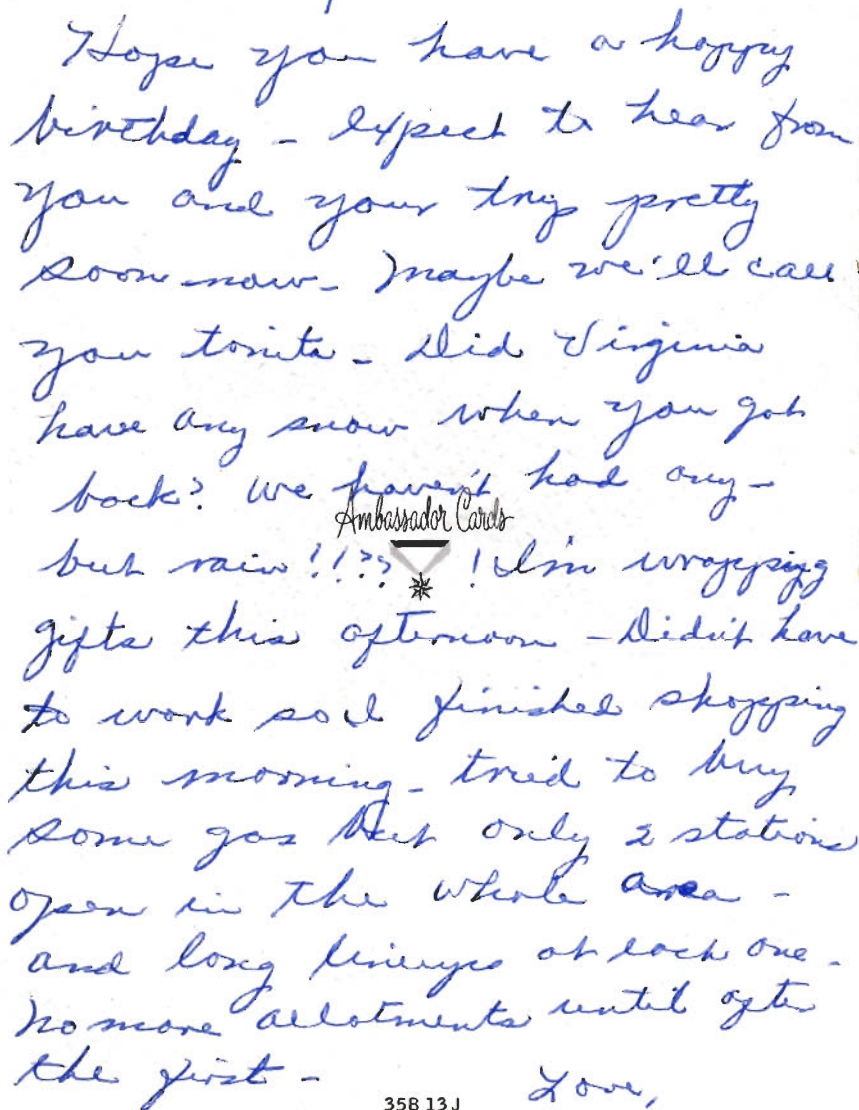 Hope you have a happy
birthday - expect to hear from
you and your trip pretty
soon now - Maybe we'll call
you tonite - Did Virginia
have any snow when you got
back? We haven't had any -
Ambassador Cards
but rain!!?? ! I'm wrapping
gifts this afternoon - Didn't have
to work so I finished shopping
this morning - tried to buy
some gas but only 2 stations
open in the whole area -
and long lineups at each one -
No more allotments until after
the first -
Love,
358 13 J